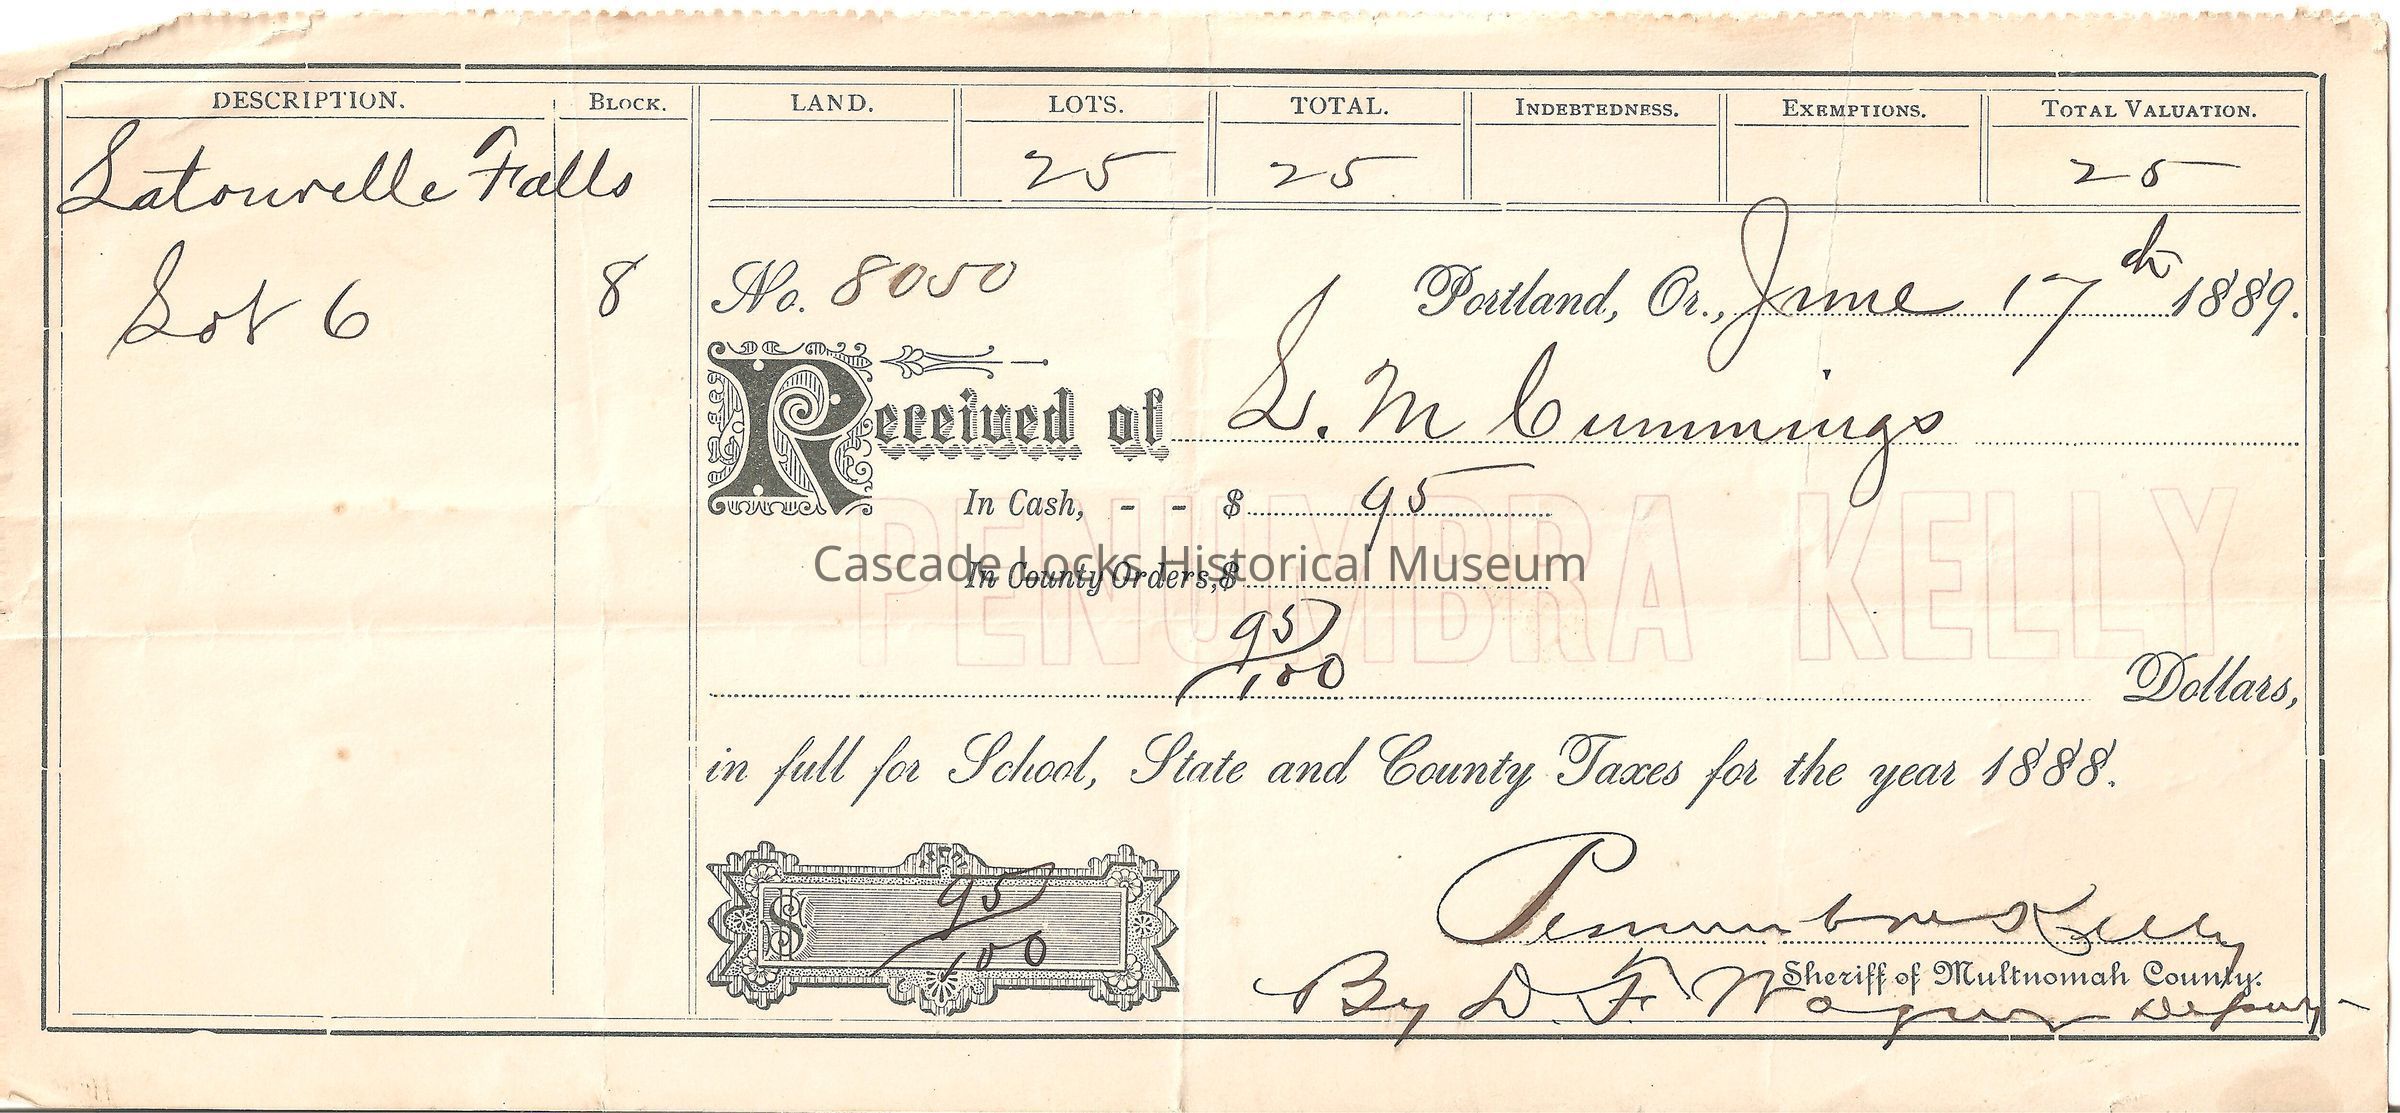 DESCRIPTION. BLOCK. LAND. LOTS. TOTAL. INDEBTEDNESS. EXEMPTIONS. TOTAL VALUATION.
Latourelle Falls 25 25 25
Lot 6 8
No. 8050 Portland, Or., June 17th 1889.
Received of L. M Cummings
In Cash, - - $ 95
PENUMBRA KELLY
Cascade Locks Historical Museum
In County Orders, $
95/100 Dollars,
in full for School, State and County Taxes for the year 1888.
$ 95/100
Penumbra Kelly
Sheriff of Multnomah County.
By D. F. Deputy